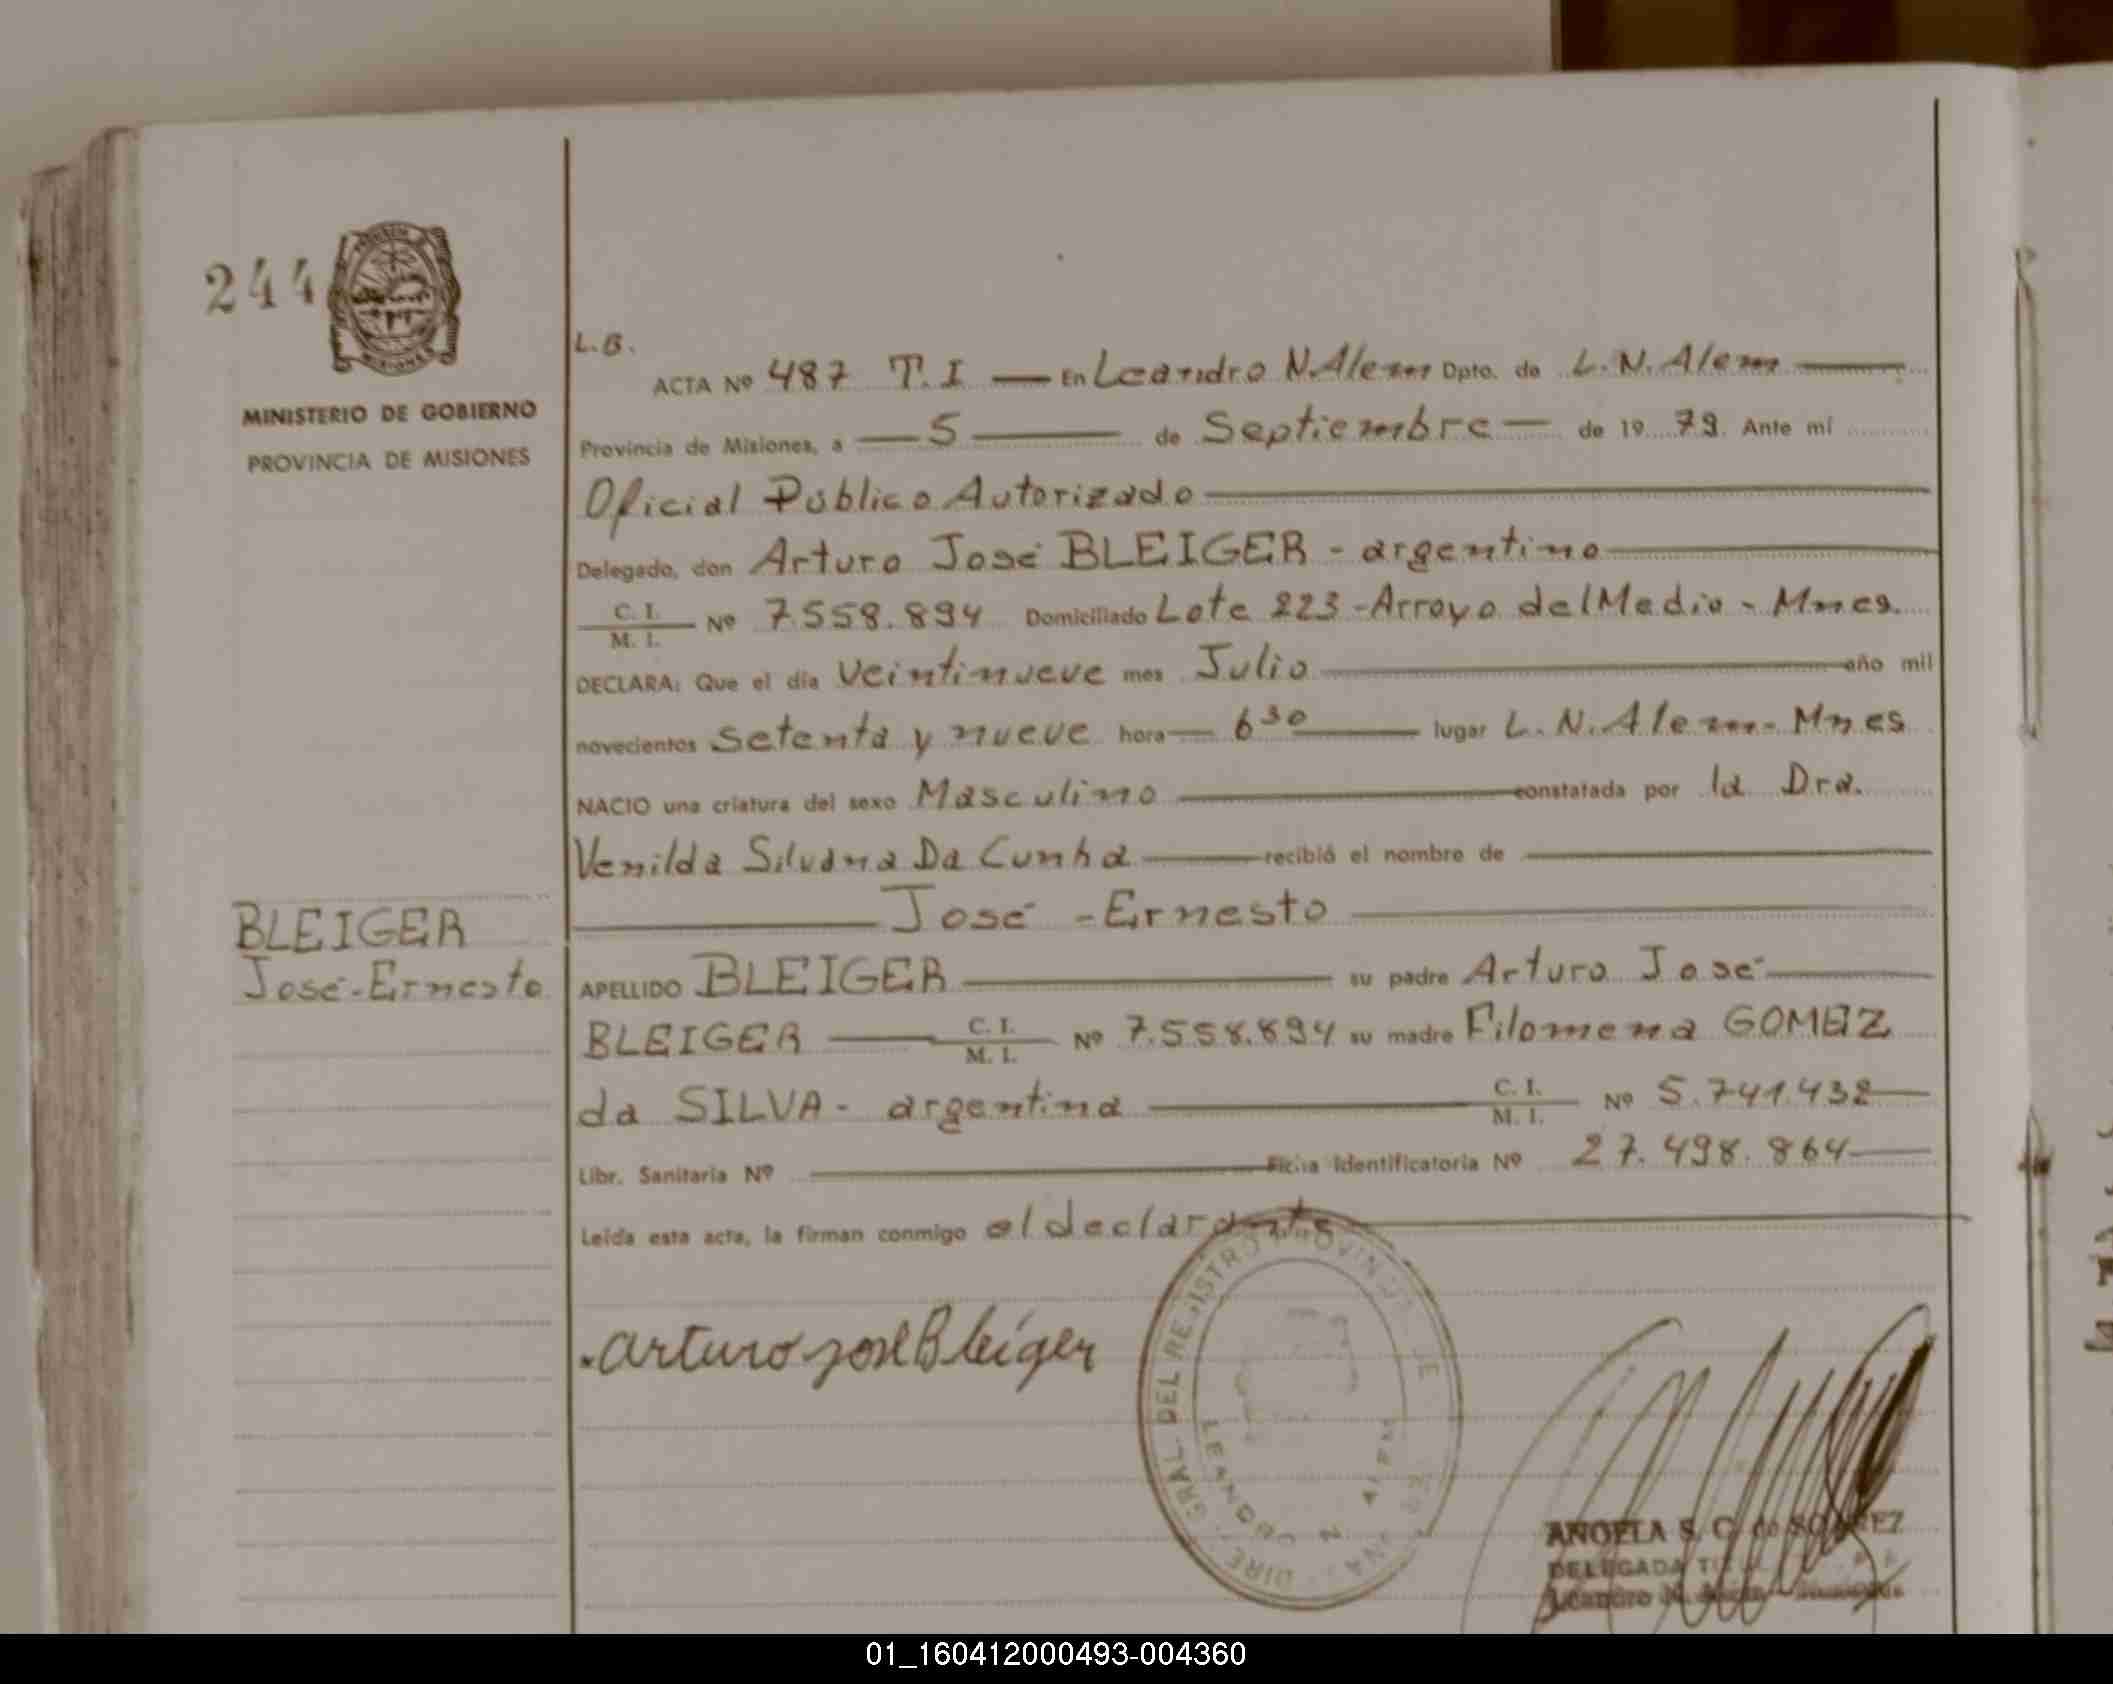 244
MINISTERIO DE GOBIERNO
PROVINCIA DE MISIONES
L.B.
ACTA Nº 487 T.I — En Leandro N. Alem Dpto. de L. N. Alem —
Provincia de Misiones, a — 5 — de Septiembre — de 19 79. Ante mí
Oficial Público Autorizado —
Delegado, don Arturo José BLEIGER - argentino —
C. I. / M. I. Nº 7.558.894 Domiciliado Lote 223 - Arroyo del Medio - Mnes.
DECLARA: Que el día veintinueve mes Julio — año mil
novecientos setenta y nueve hora — 6 30 — lugar L. N. Alem - Mnes
NACIO una criatura del sexo Masculino — constatada por la Dra.
Venilda Silvana Da Cunha — recibió el nombre de —
— José - Ernesto —
BLEIGER
José - Ernesto
APELLIDO BLEIGER — su padre Arturo José —
BLEIGER — C. I. / M. I. Nº 7.558.894 su madre Filomena GOMEZ
da SILVA - argentina — C. I. / M. I. Nº 5.741.432 —
Libr. Sanitaria Nº — Ficha Identificatoria Nº 27.498.864 —
Leída esta acta, la firman conmigo el declarante —
Arturo José Bleiger
GRAL. DEL REGISTRO PROVINC. DE
LEANDRO N. ALEM
ANGELA S. C. de
DELEGADA
Leandro N. Alem
01_160412000493-004360